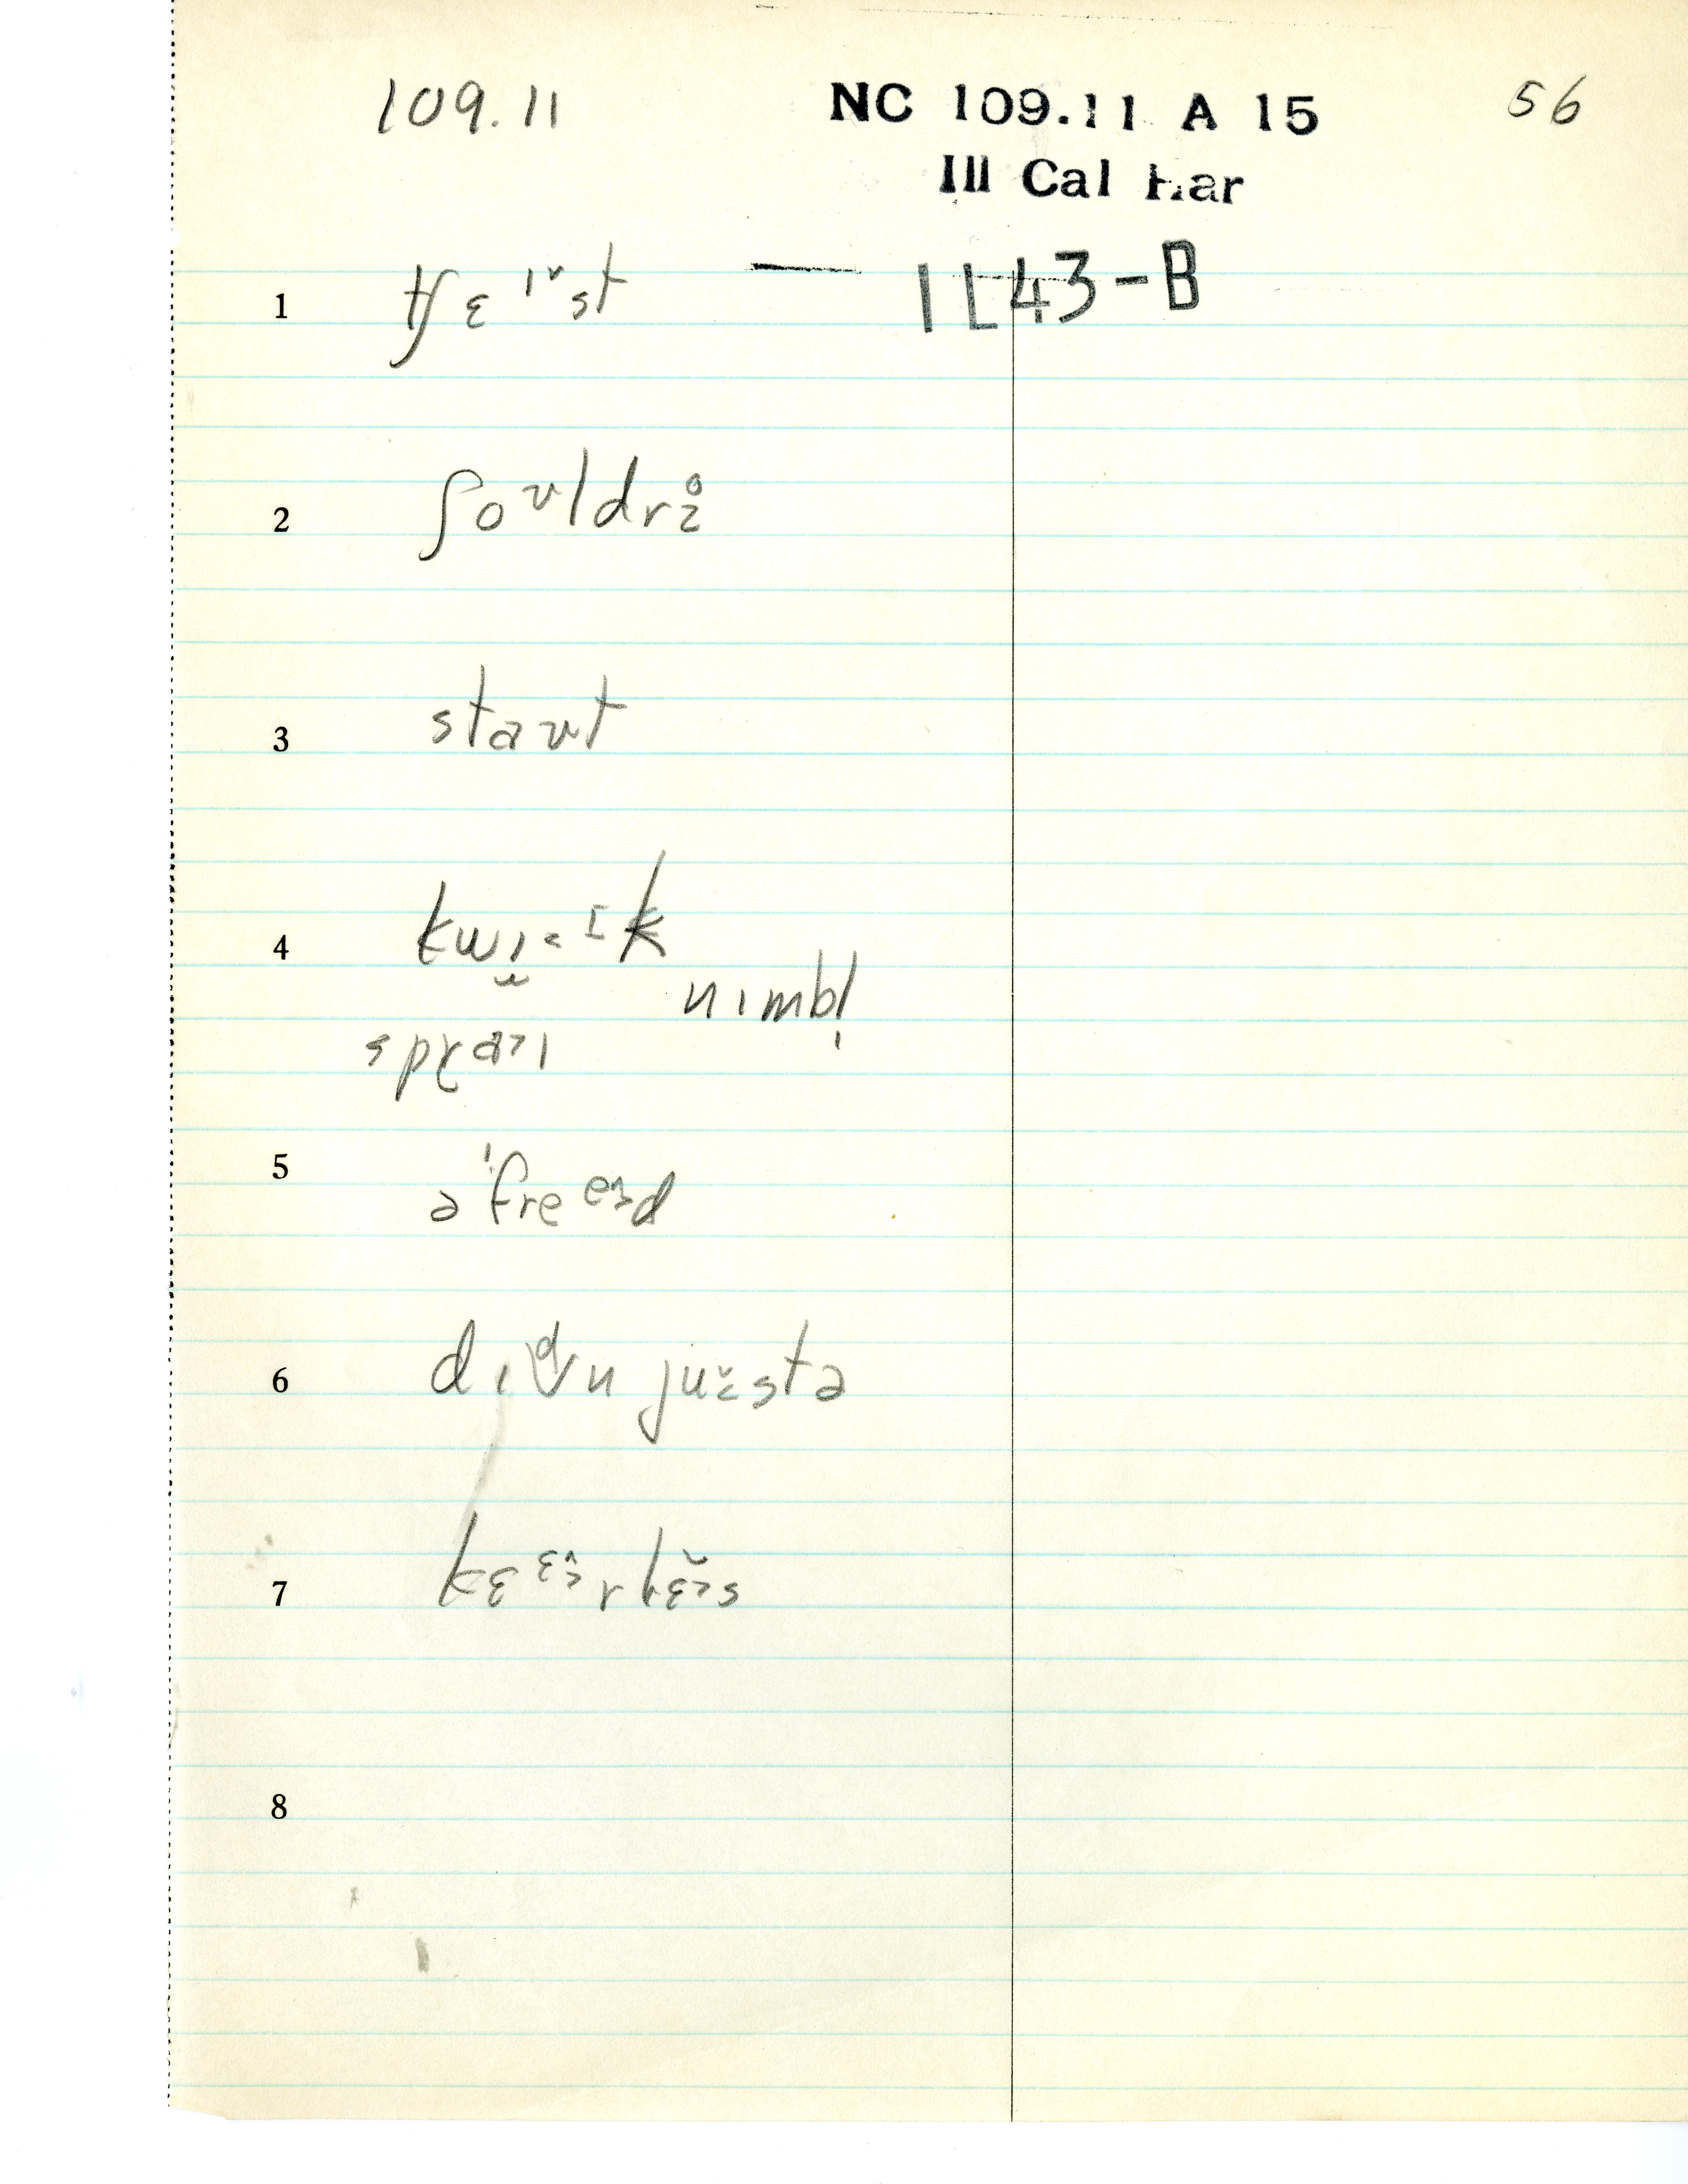 109.11 NC 109.11 A 15 56
Ill Cal Har
1 tʃɛɪ˅st — IL43-B
2 ʃoᶷldrz̥
3 staʊt
4 kwɪ̬˂ɪk
nɪmbl̩
spraɪ
5 ə'freᵉ˃d
6 dɪᵈn ju˂̌stə
7 kɛᵋ˃̂rlɛ̌˃s
8